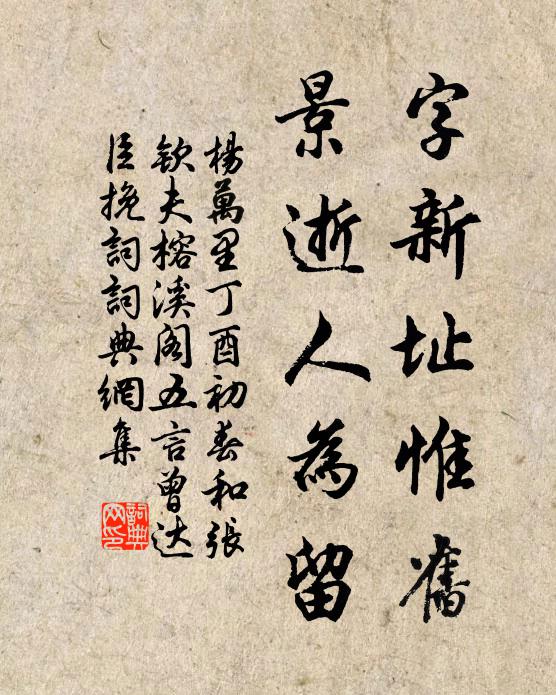 字新址惟舊
景逝人為留
楊萬里丁酉初春和張
欽夫榕溪阁五言曾达
臣挽詞詞典網集
詞典
网印